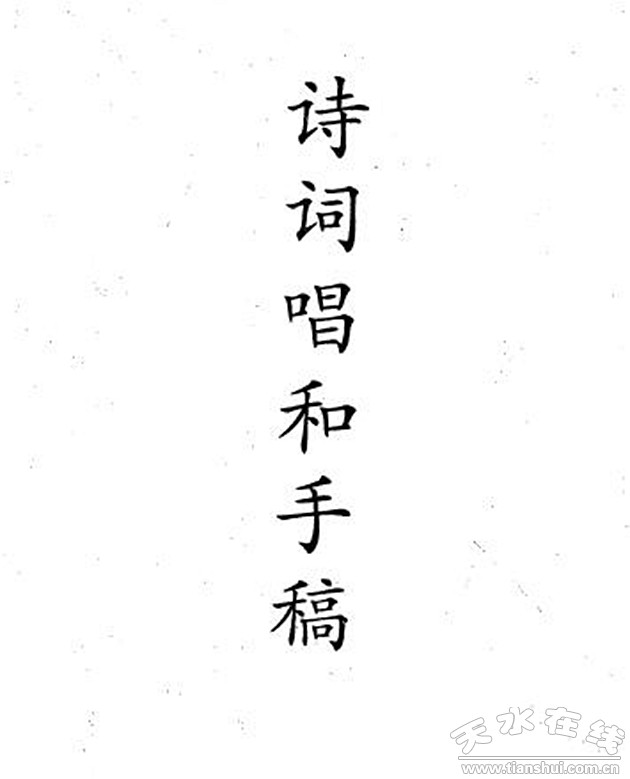 诗词唱和手稿
天水在线
www.tianshui.com.cn